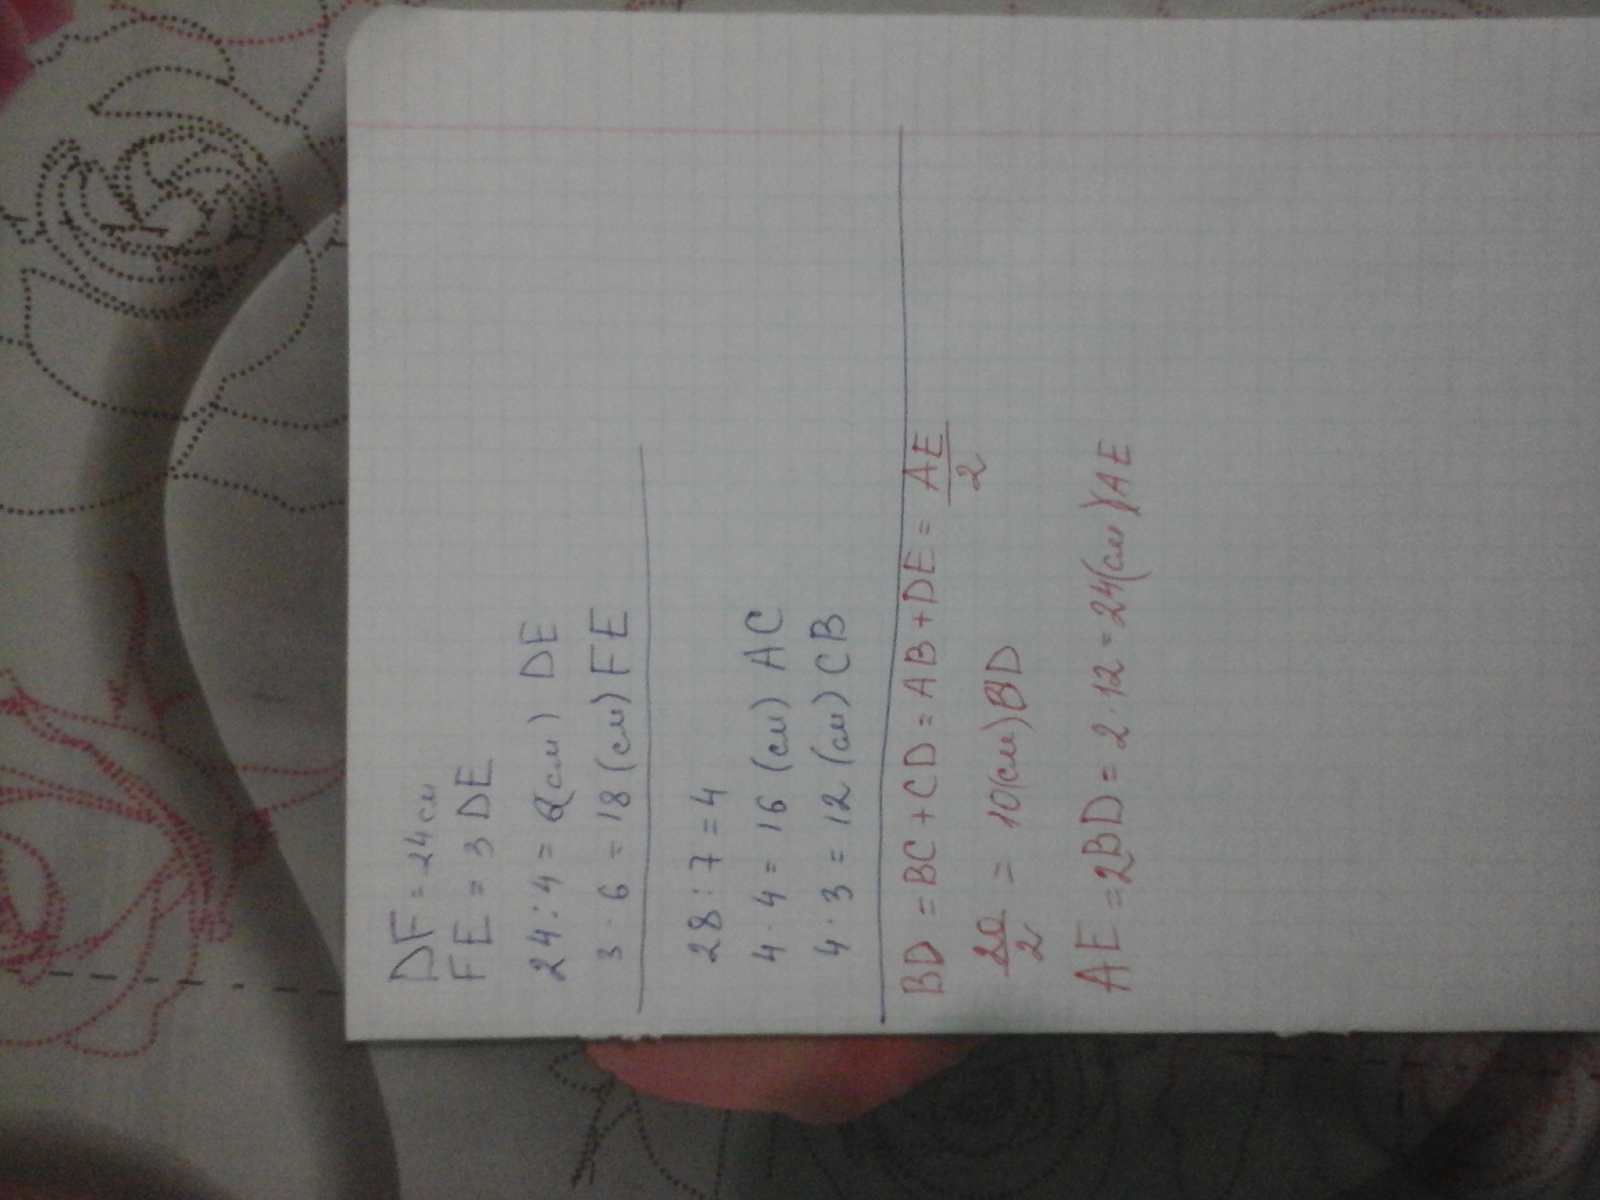 DF = 24см
FE = 3 DE
24 : 4 = 6(см) DE
3 · 6 = 18 (см) FE
28 : 7 = 4
4 · 4 = 16 (см) AC
4 · 3 = 12 (см) CB
BD = BC + CD = AB + DE = AE/2
20/2 = 10(см) BD
AE = 2BD = 2 · 12 = 24(см) AE